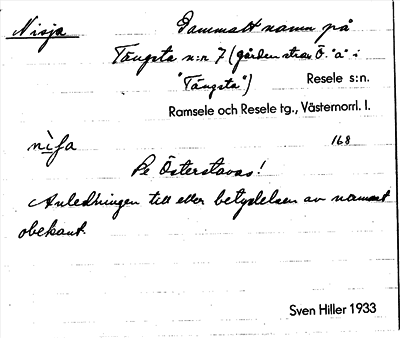 Nisja
Gammalt namn på
Tängsta n:r 7 (gården strax Ö. "ä" i
"Tängsta")
Resele s:n.
Ramsele och Resele tg., Västernorrl. l.
168
Pe Österstavas!
Anledningen till eller betydelsen av namnet
obekant.
Sven Hiller 1933